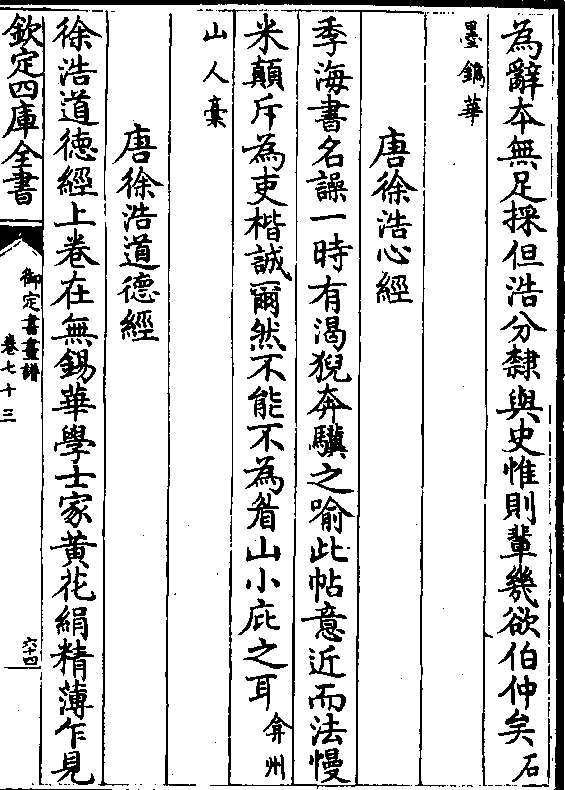 為辭本無足採但浩分隸與史惟則輩幾欲伯仲矣石
墨鐫華
唐徐浩心經
季海書名譟一時有渴猊奔驥之喻此帖意近而法慢
米顛斥為吏楷誠爾然不能不為眉山小庇之耳弇州
山人槀
唐徐浩道德經
徐浩道德經上卷在無錫華學士家黄花絹精薄乍見
欽定四庫全書
御定書畫譜
卷七十三
六十四